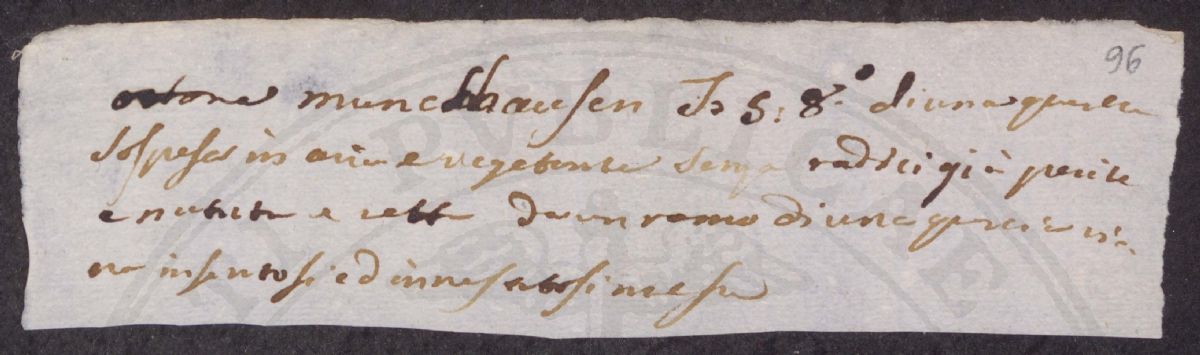 96
ottone munchhausen T. 5. 8.° di una quercia
sospesa in aria e vegetante senza radici già perite
e nutrita e retta da un ramo di una quercia vici-
na insertosi ed innestatosi in essa